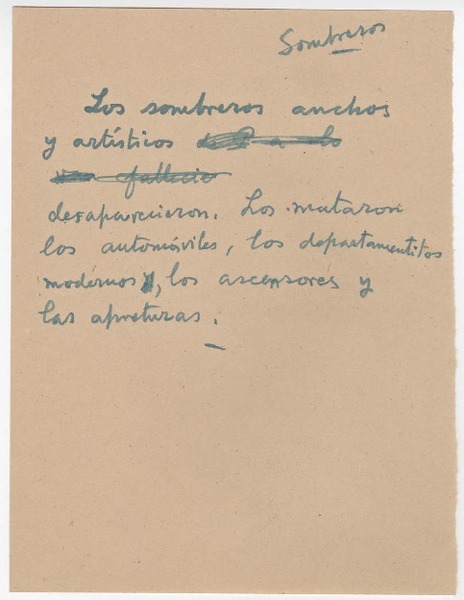 Sombreros
Los sombreros anchos
y artísticos a lo
fallecie
desaparecieron. Los mataron
los automóviles, los departamentitos
modernos, los ascensores y
las apreturas.